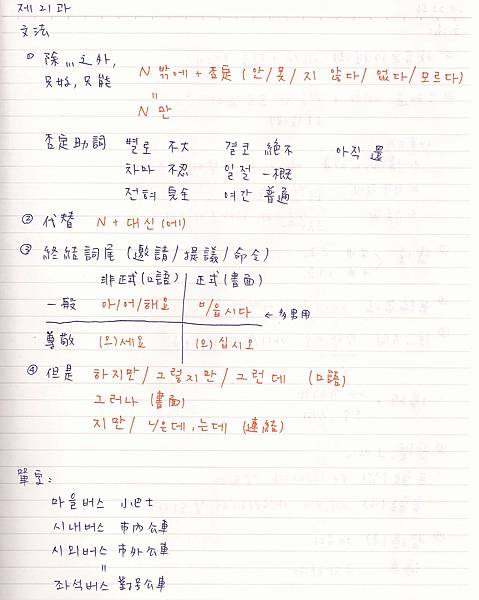 제 21과
文法
① 除...之外, N 밖에 + 否定 ( 안 / 못 / 지 않다 / 없다 / 모르다 )
只好, 只能
"
N 만
否定助詞 별로 不大 결코 絕不 아직 還
차마 不忍 일절 一概
전혀 完全 여간 普通
② 代替 N + 대신 (에)
③ 終結詞尾 (邀請 / 提議 / 命令)
非正式 (口語) 正式 (書面)
一般 아/어/해요 ㅂ/읍시다 ← 多男用
尊敬 (으)세요 (으)십시오
④ 但是 하지만 / 그렇지만 / 그런데 (口語)
그러나 (書面)
지만 / ㄴ은데, 는데 (連結)
單字:
마을버스 小巴士
시내버스 市內公車
시외버스 市外公車
"
좌석버스 對號公車